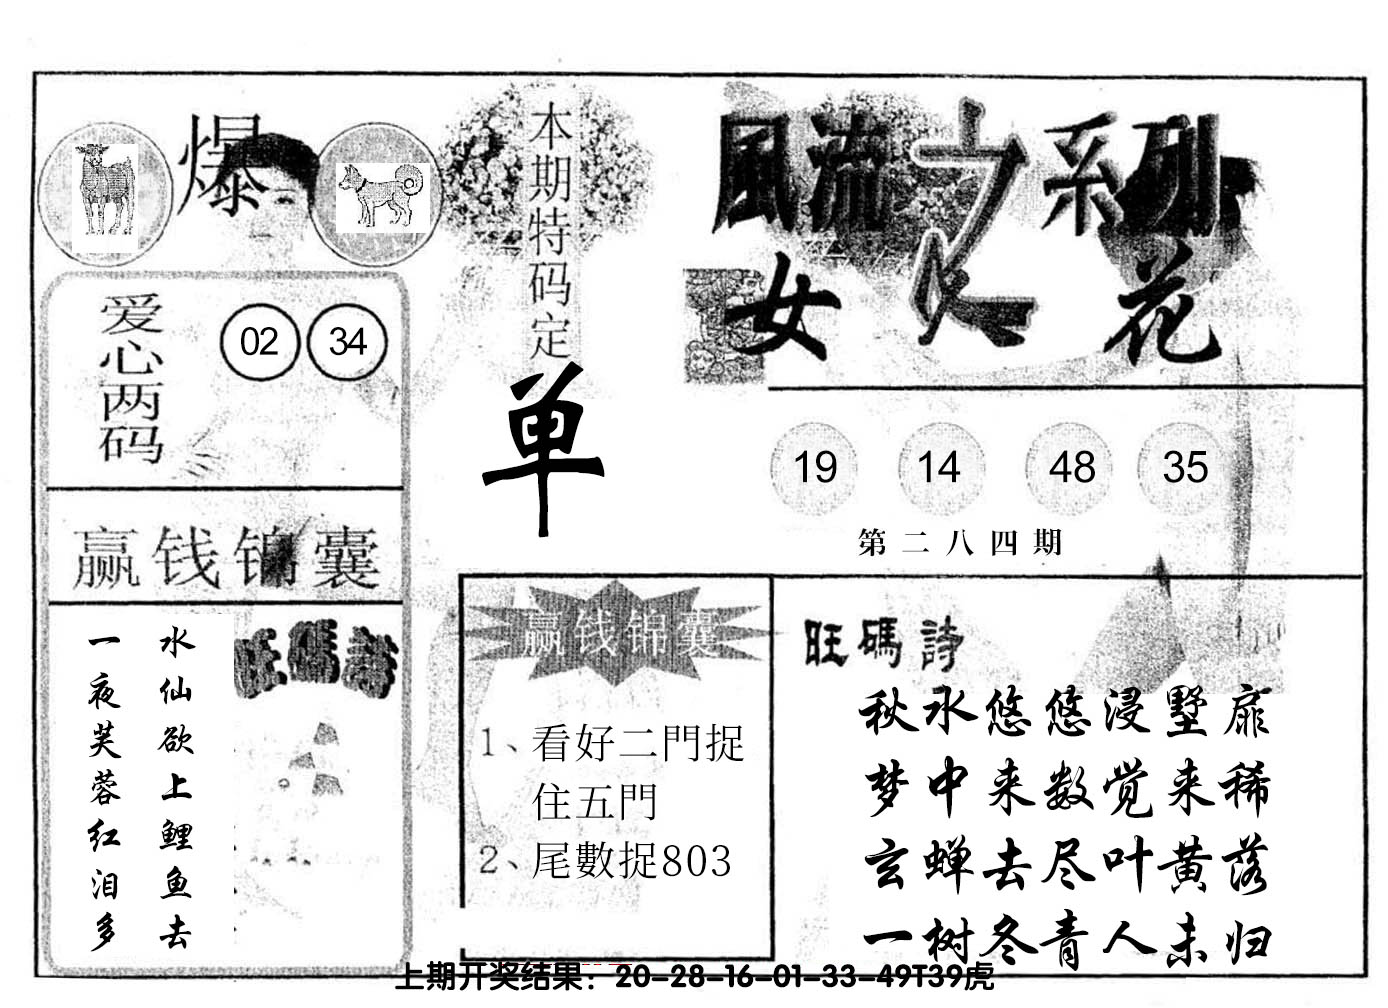 爆
爱心两码
02 34
赢钱锦囊
水仙欲上鲤鱼去
一夜芙蓉红泪多
旺碼诗
本期特码定
单
風流之系列
女人花
19 14 48 35
第二八四期
赢钱锦囊
1、看好二門捉
住五門
2、尾數捉803
旺碼詩
秋水悠悠浸墅扉
梦中来数觉来稀
玄蝉去尽叶黄落
一树冬青人未归
上期开奖结果：20-28-16-01-33-49T39虎